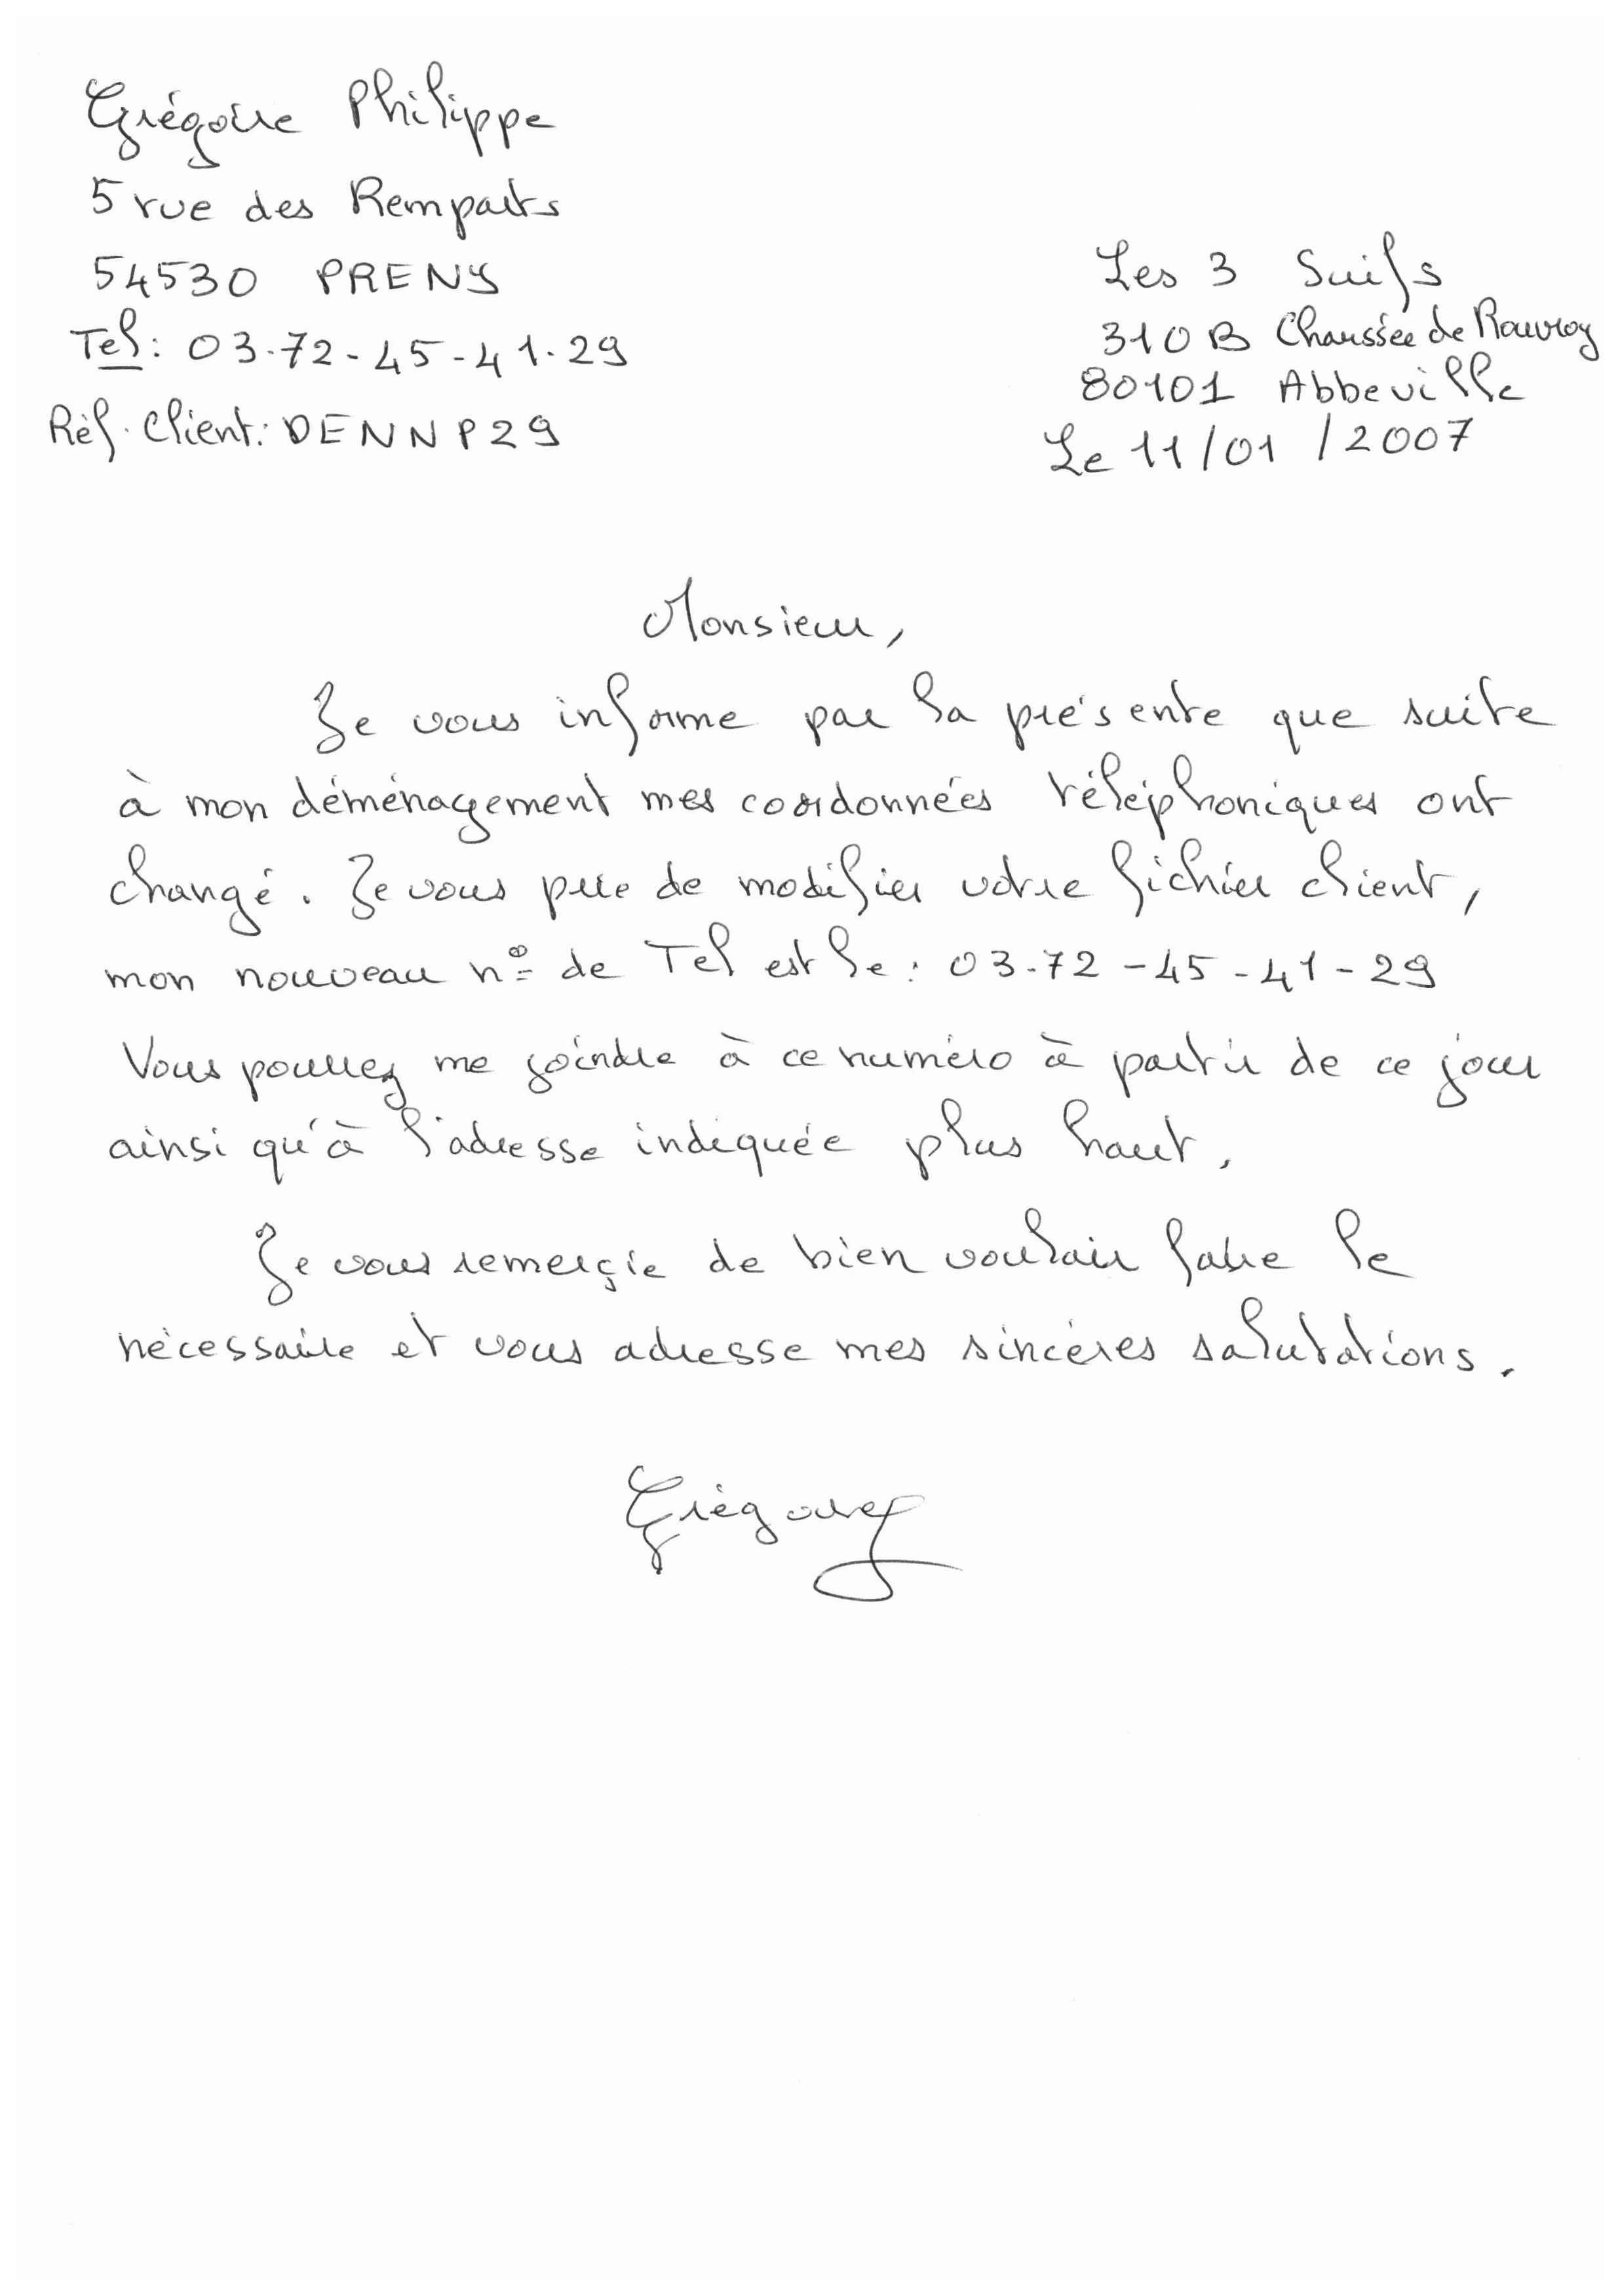 Grégoire Philippe
5 rue des Remparts
54530 PRENY
Tel : 03.72-45-41.29
Réf. Client : DENNP29
Les 3 Suifs
310 B Chaussée de Rouvroy
80101 Abbeville
Le 11/01/2007
Monsieur,
Je vous informe par la présente que suite
à mon déménagement mes coordonnées téléphoniques ont
changé. Je vous prie de modifier votre fichier client,
mon nouveau n° de Tel est le : 03.72-45-41-29
Vous pourrez me joindre à ce numéro à partir de ce jour
ainsi qu'à l'adresse indiquée plus haut.
Je vous remerçie de bien vouloir faire le
nécessaire et vous adresse mes sincères salutations.
Grégoire